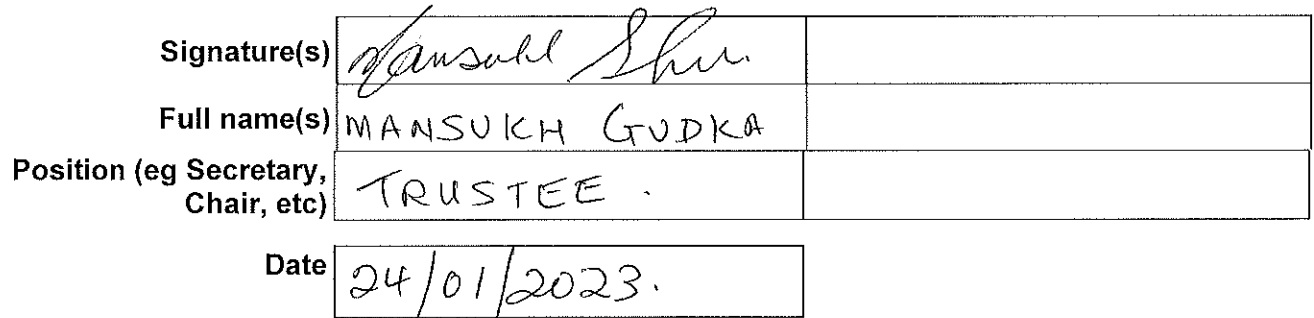 Signature(s) Mansukh
Full name(s) MANSUKH GUDKA
Position (eg Secretary,
Chair, etc) TRUSTEE.
Date 24/01/2023.